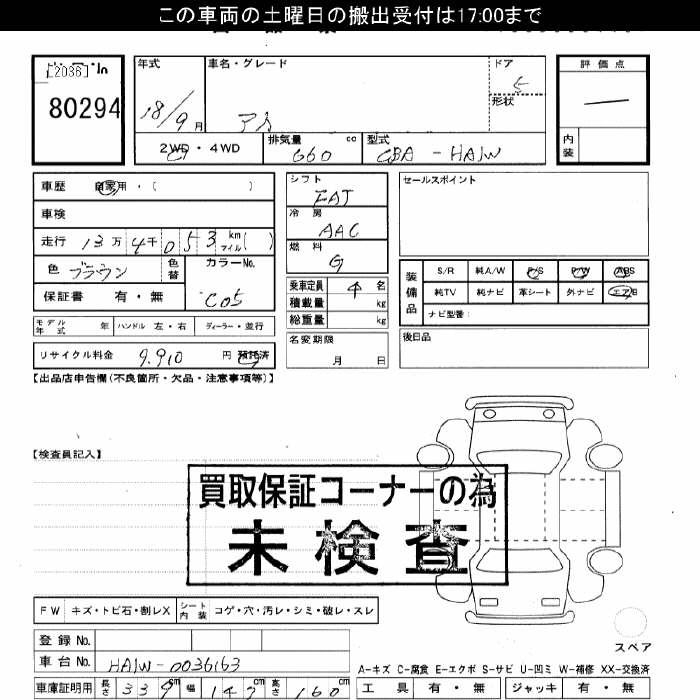 この車両の土曜日の搬出受付は17:00まで
[2036]
80294
年式
車名・グレード
ドア
5
形状
評価点
18/9月
アイ
2WD・4WD
排気量 660 cc
型式 CBA-HA1W
内装
車歴 自家用・( )
シフト FAT
セールスポイント
車検
冷房 AAC
走行 13万4千053 km マイル( )
燃料 G
色 ブラウン 色替
カラーNo. C05
装備品
S/R 純A/W P/S P/W ABS
保証書 有・無
乗車定員 4 名
純TV 純ナビ 革シート 外ナビ エアB
積載量 kg
総重量 kg
ナビ型番:
モデル年式 年 ハンドル 左・右 ディーラー・並行
名変期限 月 日
後日品
リサイクル料金 9,910 円 預託済
【出品店申告欄(不良箇所・欠品・注意事項等)】
【検査員記入】
買取保証コーナーの為
未検査
FW キズ・トビ石・割レX シート内装 コゲ・穴・汚レ・シミ・破レ・スレ
登録No.
スペア
車台No. HA1W-0036163
A-キズ C-腐食 E-エクボ S-サビ U-凹ミ W-補修 XX-交換済
車庫証明用 長さ 339cm 幅 147cm 高さ 160cm
工具 有・無 ジャッキ 有・無